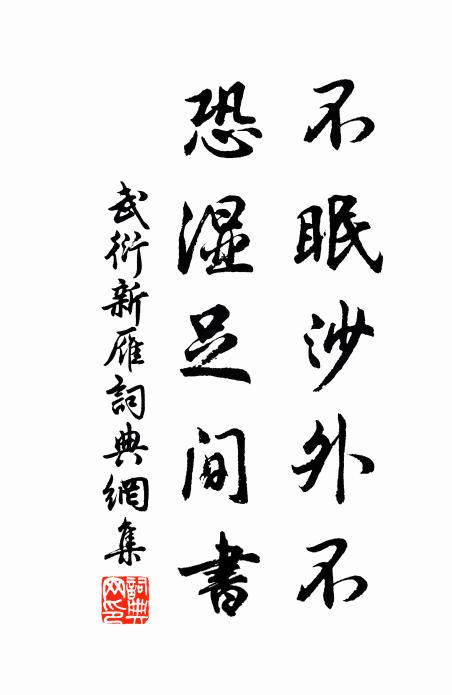 不眠沙外不
恐湿足间書
武衍新雁詞典網集
詞典网印